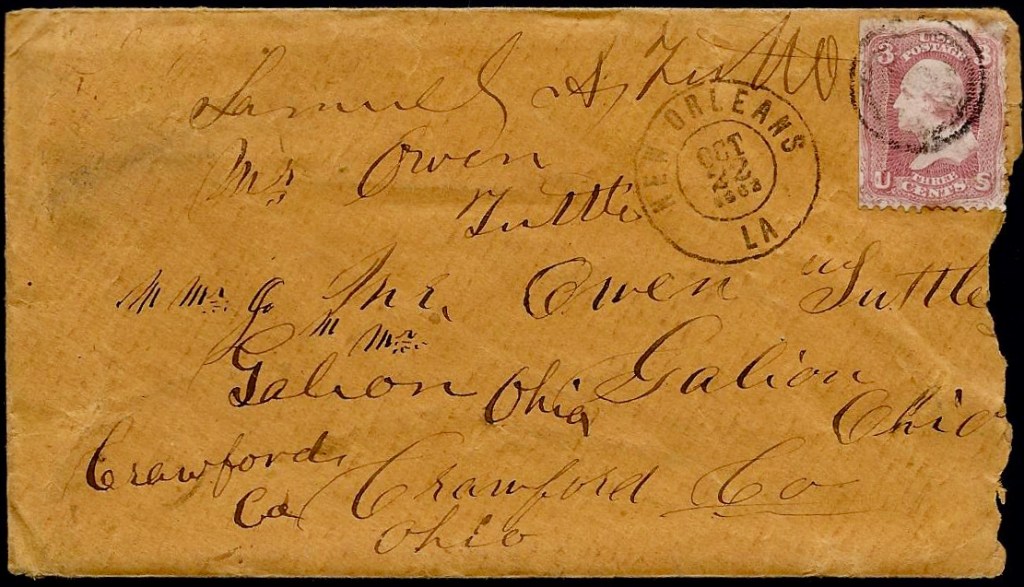 Samuel A. Tuttle
3 U.S. POSTAGE 3
U THREE CENTS S
NEW ORLEANS
OCT
22
LA
Mr Owen
Tuttle
M Mr. Mr. Owen Tuttle
M Mr
Galion Ohio Galion
Ohio
Crawford Crawford Co
Co
Ohio